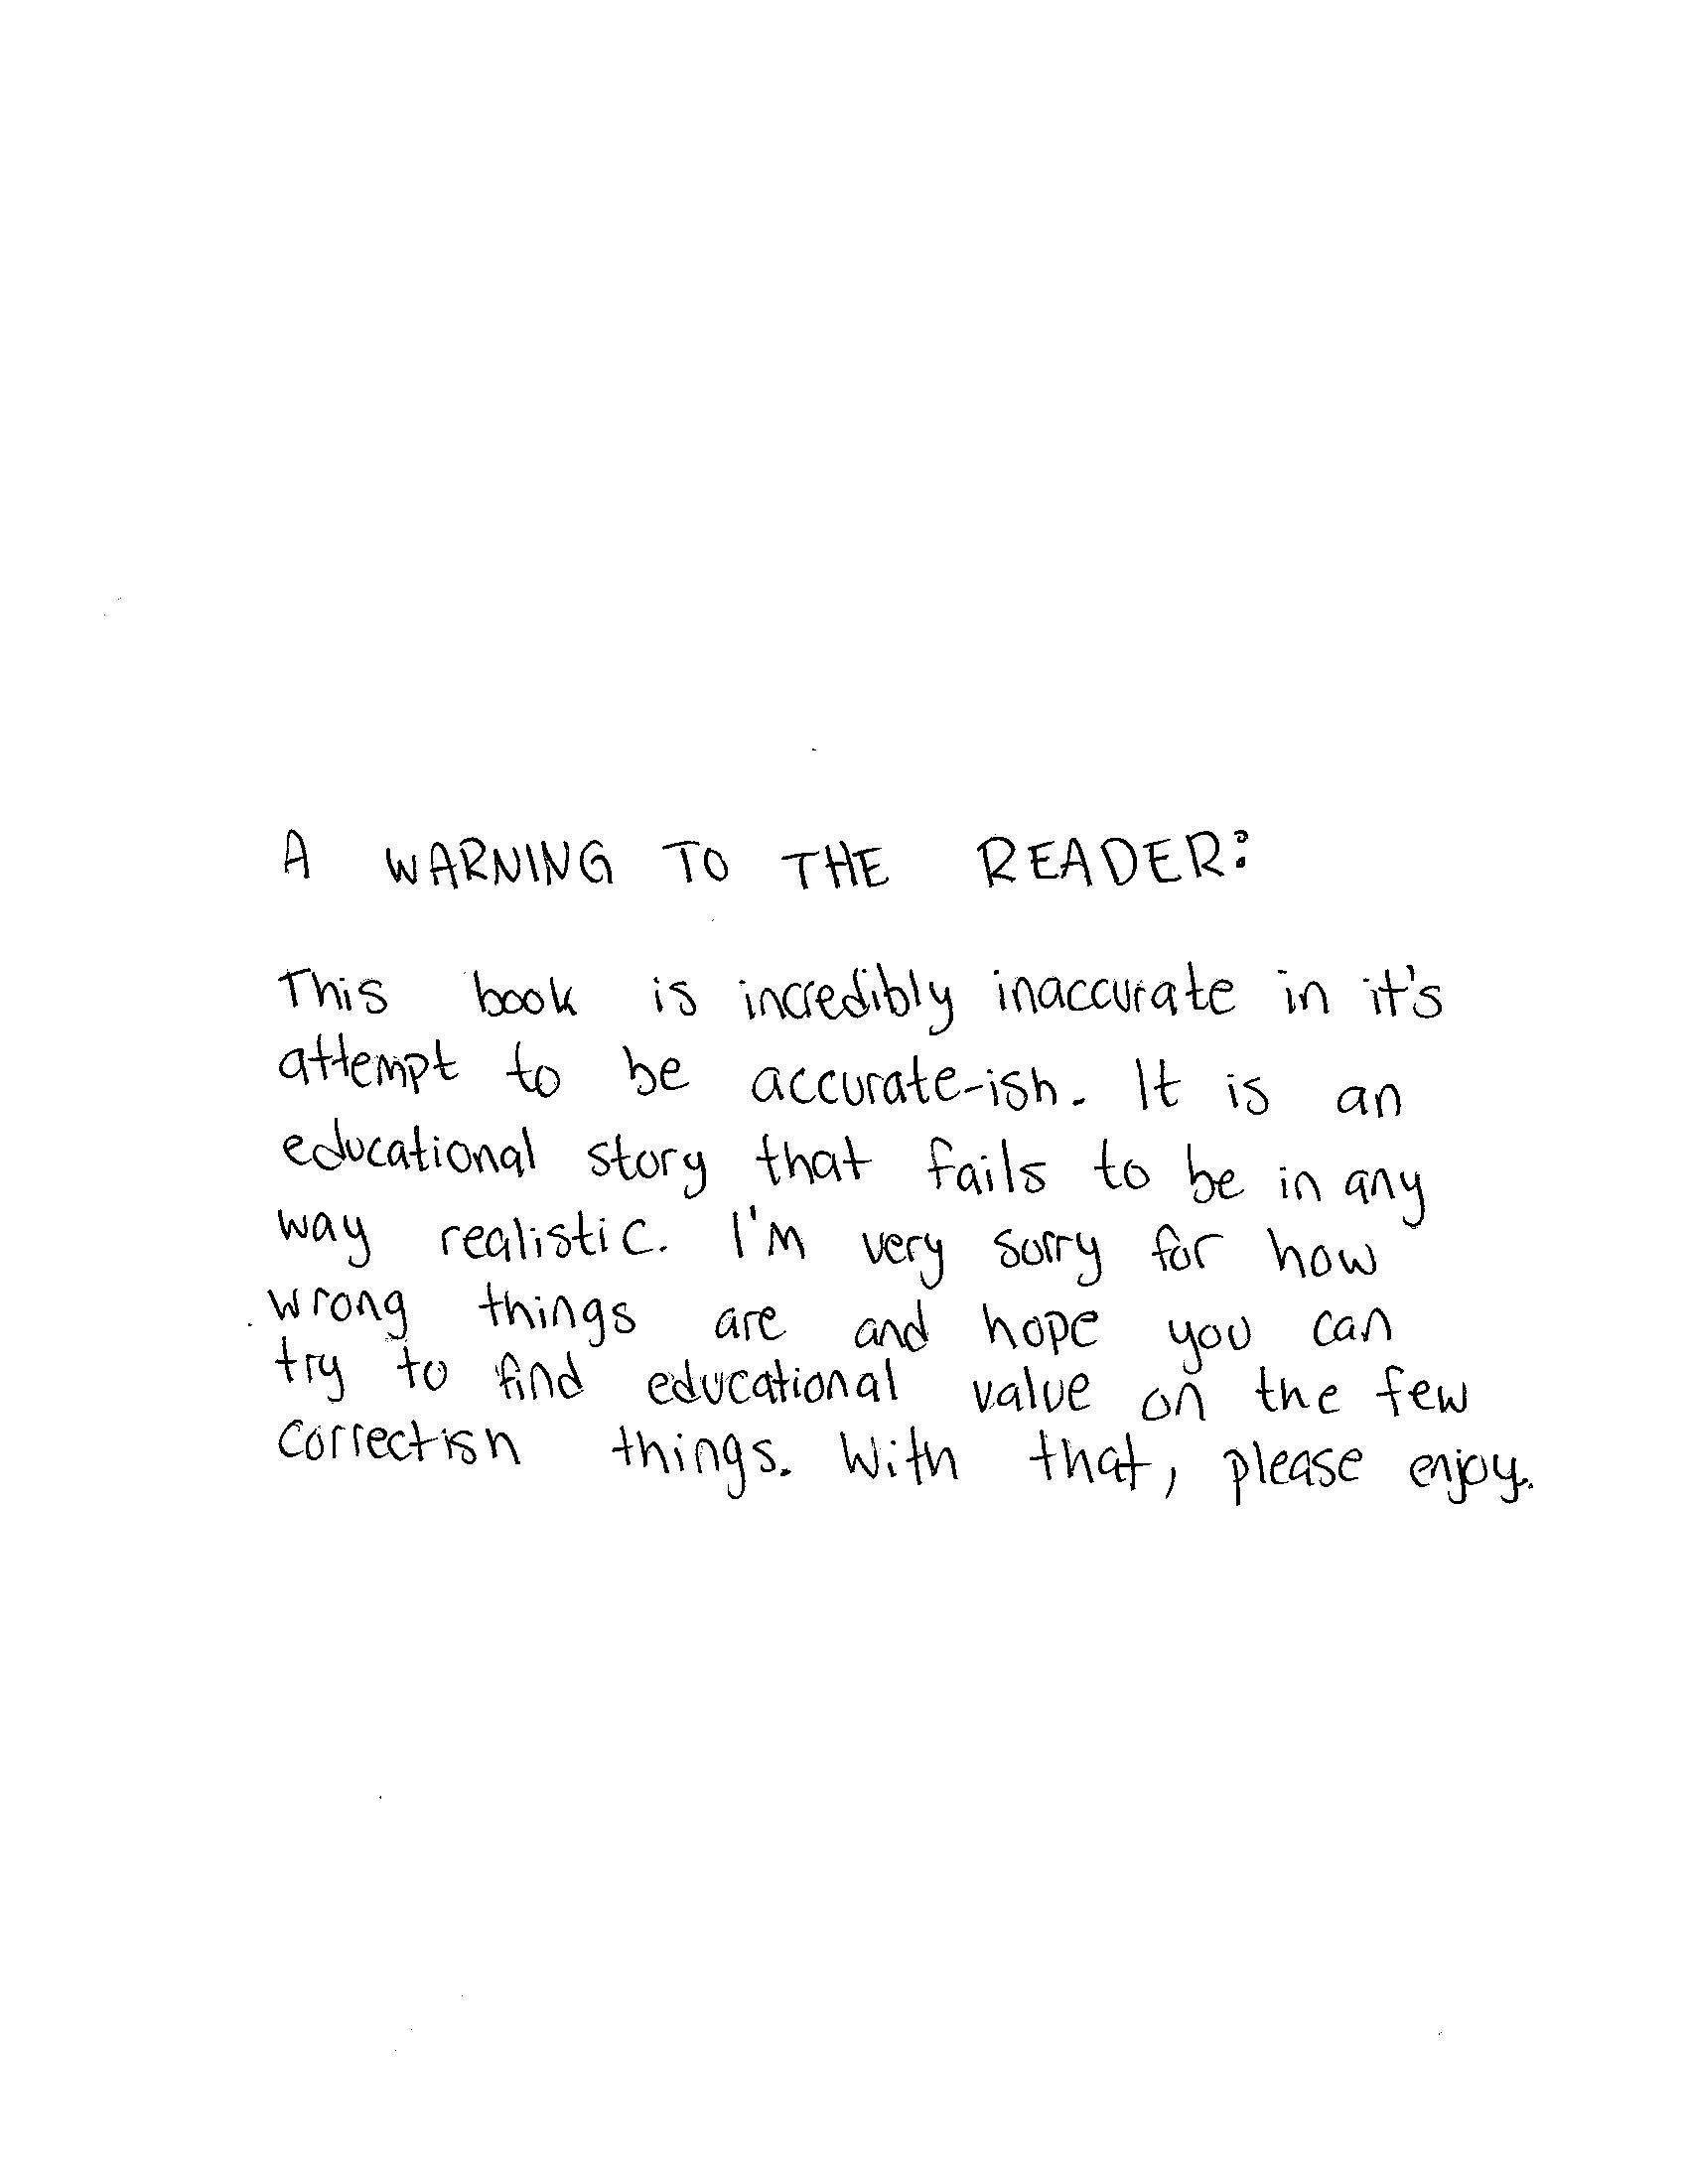 A WARNING TO THE READER:
This book is incredibly inaccurate in it's
attempt to be accurate-ish. It is an
educational story that fails to be in any
way realistic. I'm very sorry for how
wrong things are and hope you can
try to find educational value on the few
correctish things. With that, please enjoy.